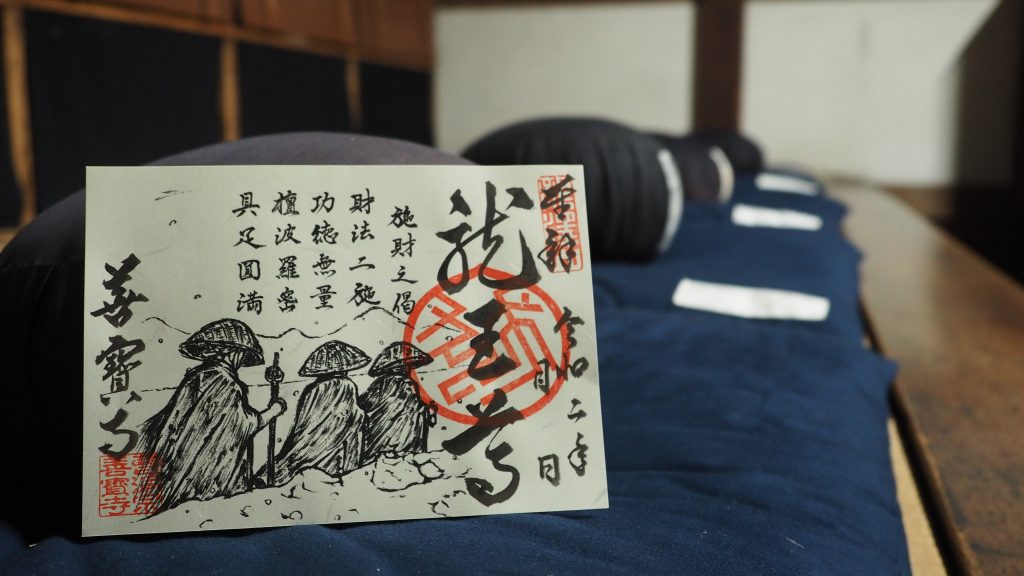 奉拝
令和二年
月 日
龍王尊
施財之偈
財法二施
功徳無量
檀波羅密
具足圓満
善寳寺
善寳寺